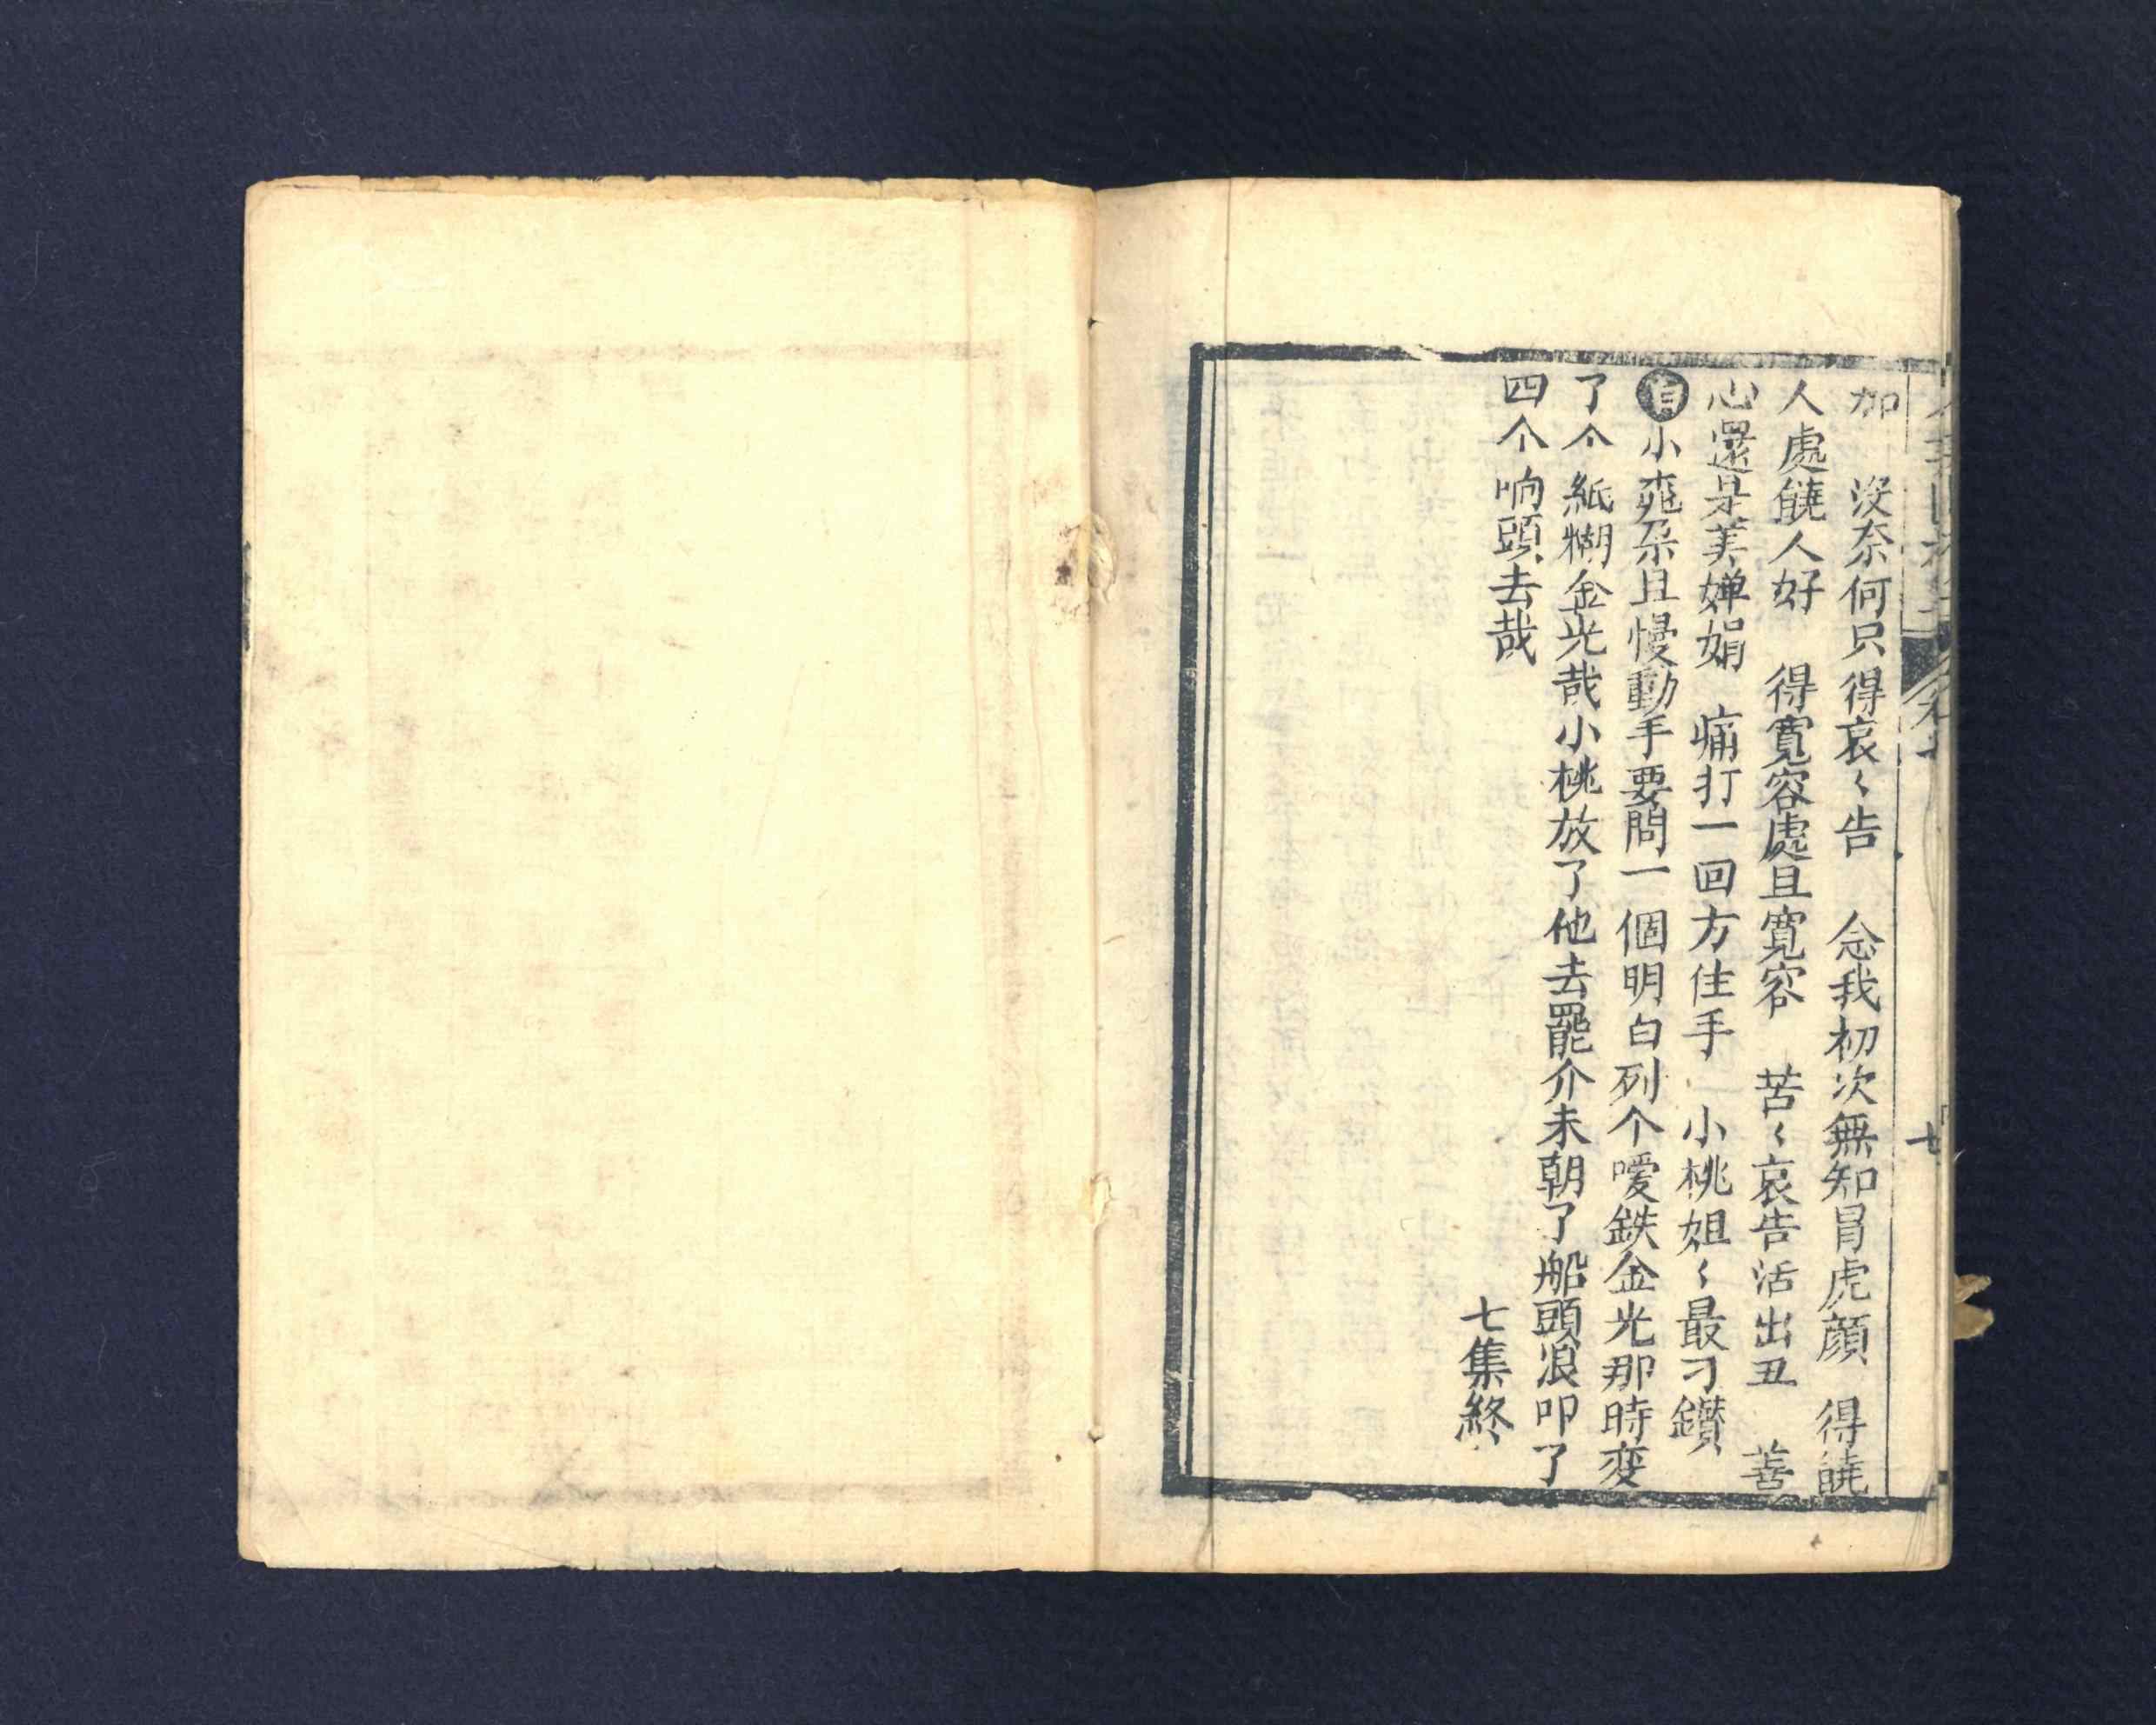 加　没奈何只得哀〻告　念我初次無知冒虎顔　得饒
人處饒人好　得寛容處且寛容　苦〻哀告活出丑　善
心還是美嬋娟　痛打一回方住手　小桃姐〻最刁鑚
白小朶且慢動手要問一個明白列个嗳鉄金光那時変
了个紙糊金光哉小桃放了他去罷介未朝了船頭浪叩了
四个响頭去哉
七集終
七